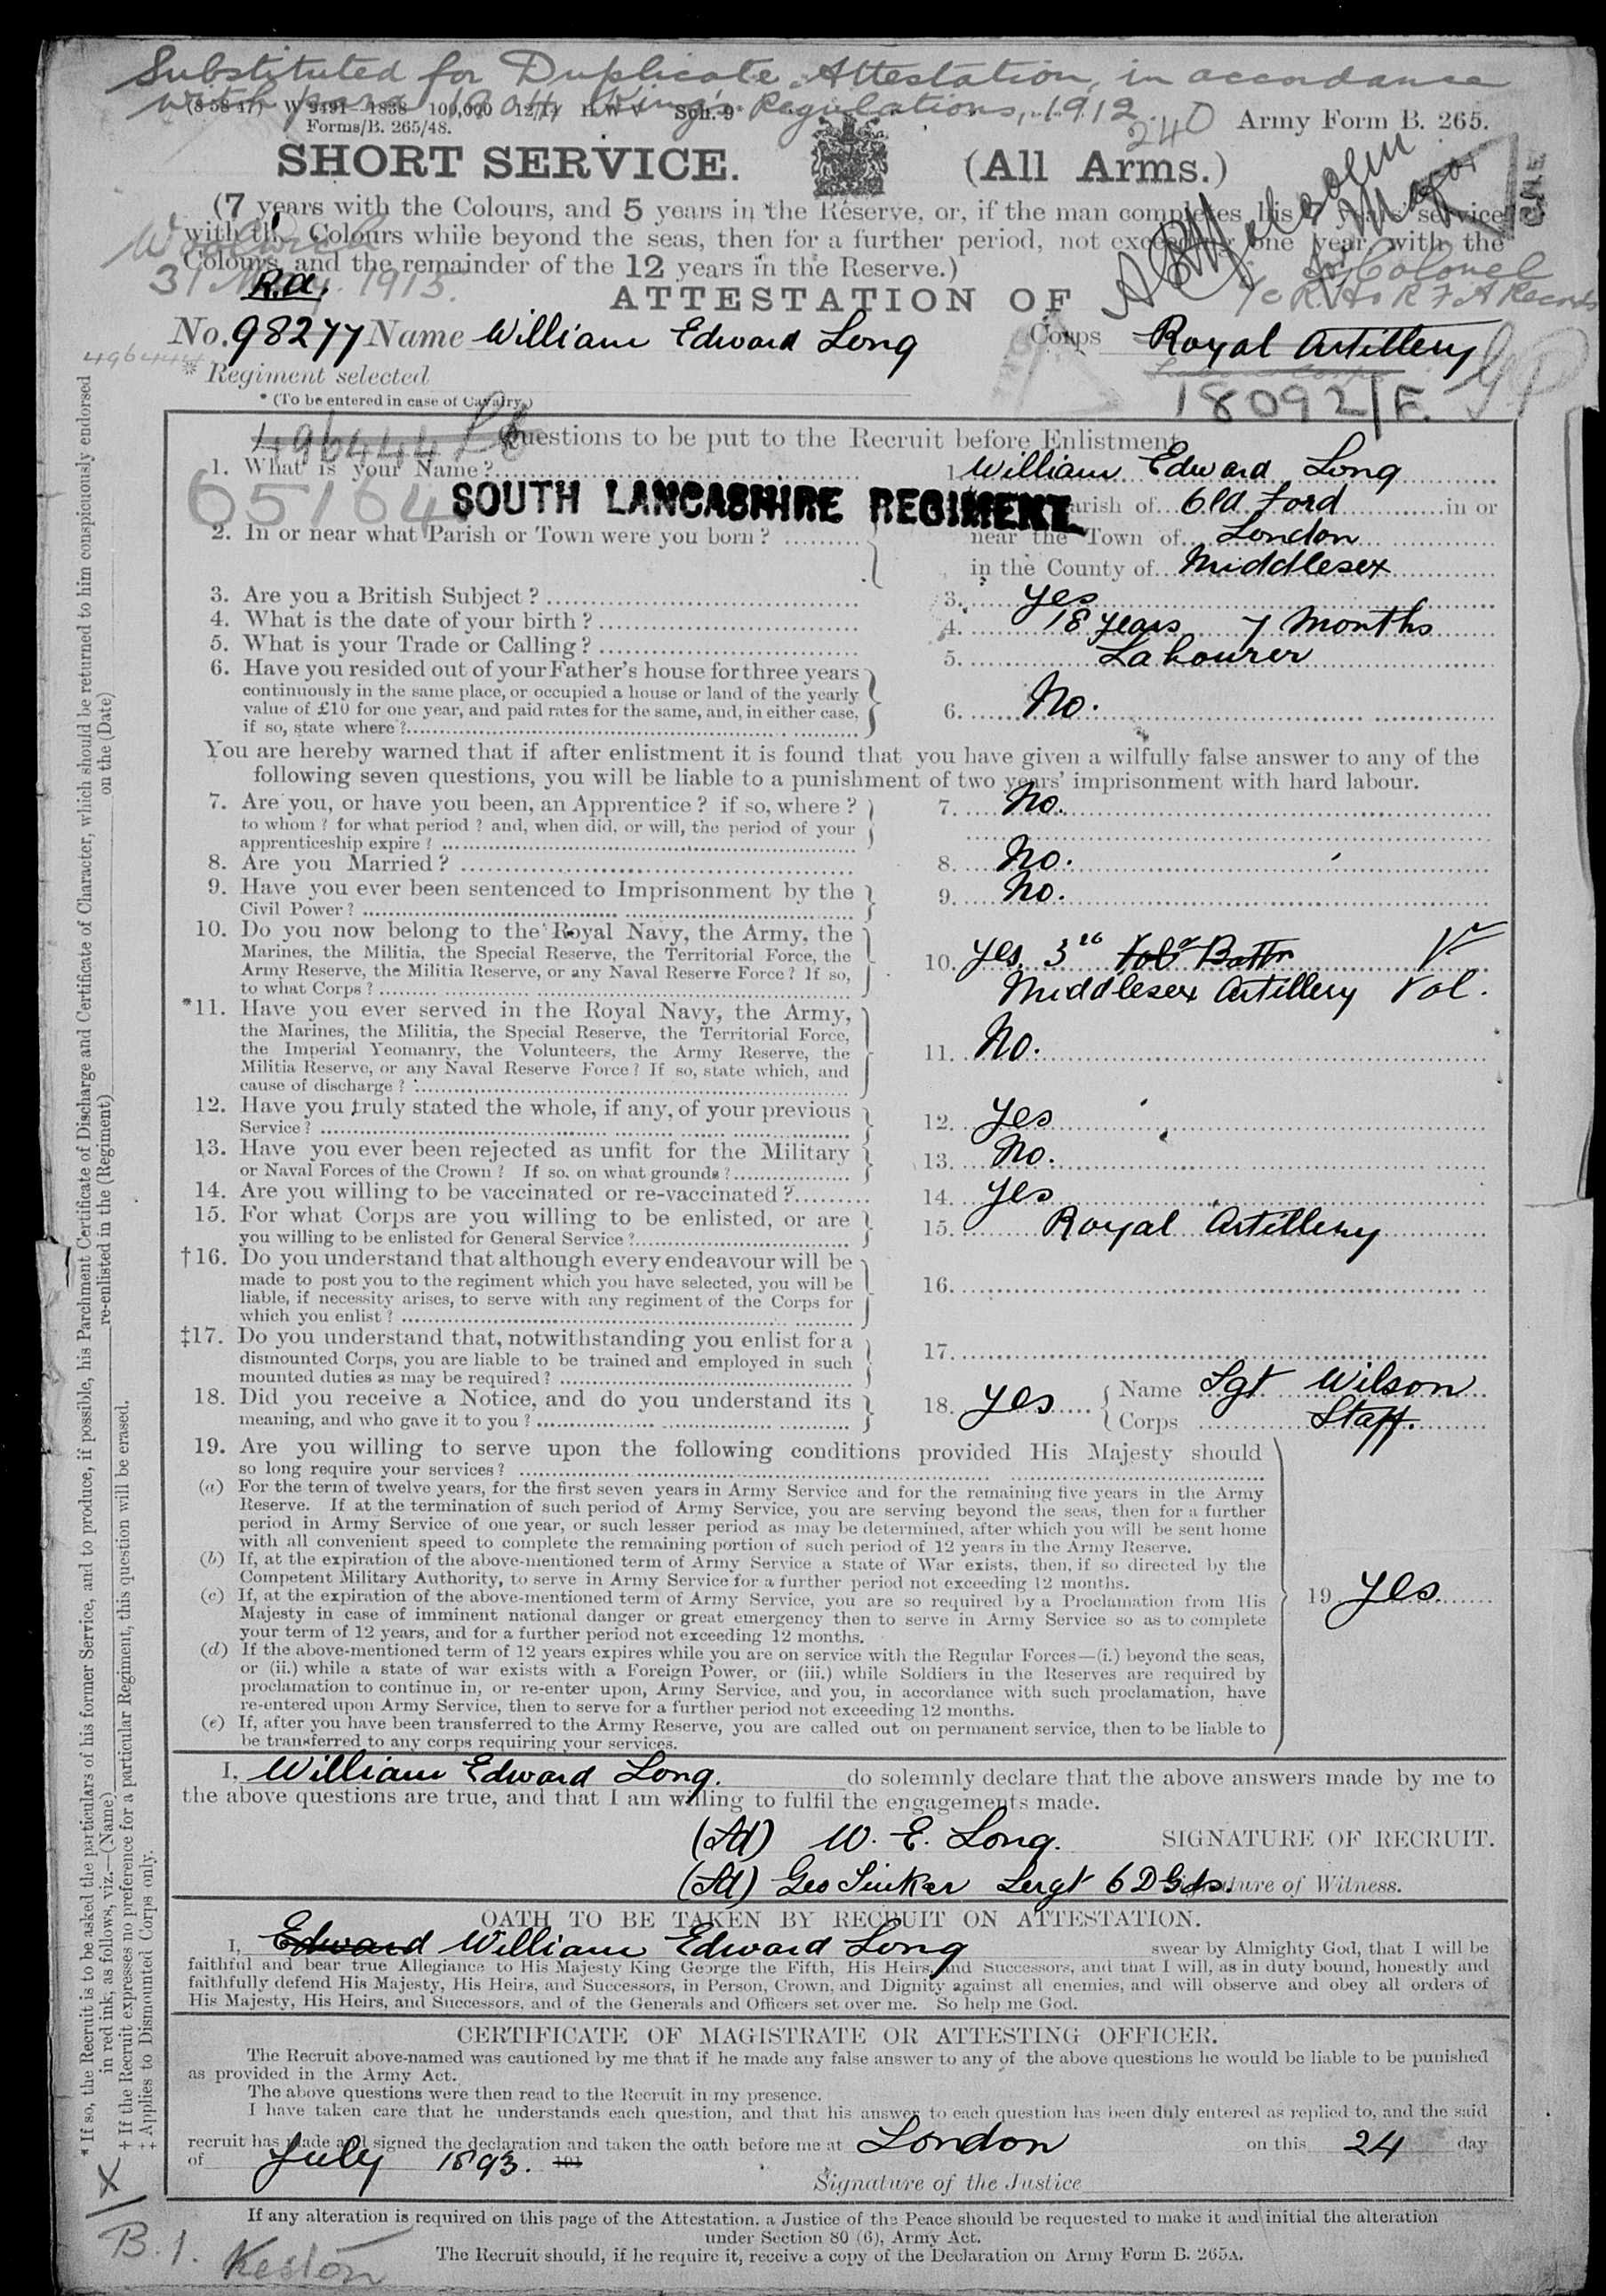 Substituted for Duplicate Attestation, in accordance
with para 1904 King's Regulations, 1912.
(8 58 47) W 2491—1838 100,000 12/14 H W V Sch. 9
Forms/B. 265/48.
240
Army Form B. 265.
SHORT SERVICE. (All Arms.)
(7 years with the Colours, and 5 years in the Reserve, or, if the man completes his 7 years' service
with the Colours while beyond the seas, then for a further period, not exceeding one year, with the
Colours, and the remainder of the 12 years in the Reserve.)
Major
for Colonel
i/c R.H. & R.F.A Records
Woolwich
31 May 1915.
R.A.
ATTESTATION OF
No. 98277 Name William Edward Long Corps Royal Artillery
496444
* Regiment selected
* (To be entered in case of Cavalry.)
18092/F.
496444
Questions to be put to the Recruit before Enlistment.
1. What is your Name? 1. William Edward Long
65164
SOUTH LANCASHIRE REGIMENT
2. In or near what Parish or Town were you born?
Parish of Old Ford in or
near the Town of London
in the County of Middlesex
3. Are you a British Subject? 3. Yes
4. What is the date of your birth? 4. 18 years 7 Months
5. What is your Trade or Calling? 5. Labourer
6. Have you resided out of your Father's house for three years
continuously in the same place, or occupied a house or land of the yearly
value of £10 for one year, and paid rates for the same, and, in either case,
if so, state where? 6. No.
You are hereby warned that if after enlistment it is found that you have given a wilfully false answer to any of the
following seven questions, you will be liable to a punishment of two years' imprisonment with hard labour.
7. Are you, or have you been, an Apprentice? if so, where? 7. No.
to whom? for what period? and, when did, or will, the period of your
apprenticeship expire?
8. Are you Married? 8. No.
9. Have you ever been sentenced to Imprisonment by the
Civil Power? 9. No.
10. Do you now belong to the Royal Navy, the Army, the
Marines, the Militia, the Special Reserve, the Territorial Force, the
Army Reserve, the Militia Reserve, or any Naval Reserve Force? If so,
to what Corps?
10. Yes, 3rd Vol. Battn
Middlesex Artillery Vol.
*11. Have you ever served in the Royal Navy, the Army,
the Marines, the Militia, the Special Reserve, the Territorial Force,
the Imperial Yeomanry, the Volunteers, the Army Reserve, the
Militia Reserve, or any Naval Reserve Force? If so, state which, and
cause of discharge?
11. No.
12. Have you truly stated the whole, if any, of your previous
Service? 12. Yes
13. Have you ever been rejected as unfit for the Military
or Naval Forces of the Crown? If so, on what grounds? 13. No.
14. Are you willing to be vaccinated or re-vaccinated? 14. Yes
15. For what Corps are you willing to be enlisted, or are
you willing to be enlisted for General Service? 15. Royal Artillery
†16. Do you understand that although every endeavour will be
made to post you to the regiment which you have selected, you will be
liable, if necessity arises, to serve with any regiment of the Corps for
which you enlist?
16.
‡17. Do you understand that, notwithstanding you enlist for a
dismounted Corps, you are liable to be trained and employed in such
mounted duties as may be required?
17.
18. Did you receive a Notice, and do you understand its
meaning, and who gave it to you?
18. Yes Name Sgt Wilson
Corps Staff.
19. Are you willing to serve upon the following conditions provided His Majesty should
so long require your services?
(a) For the term of twelve years, for the first seven years in Army Service and for the remaining five years in the Army
Reserve. If at the termination of such period of Army Service, you are serving beyond the seas, then for a further
period in Army Service of one year, or such lesser period as may be determined, after which you will be sent home
with all convenient speed to complete the remaining portion of such period of 12 years in the Army Reserve.
(b) If, at the expiration of the above-mentioned term of Army Service a state of War exists, then, if so directed by the
Competent Military Authority, to serve in Army Service for a further period not exceeding 12 months.
(c) If, at the expiration of the above-mentioned term of Army Service, you are so required by a Proclamation from His
Majesty in case of imminent national danger or great emergency then to serve in Army Service so as to complete
your term of 12 years, and for a further period not exceeding 12 months.
(d) If the above-mentioned term of 12 years expires while you are on service with the Regular Forces—(i.) beyond the seas,
or (ii.) while a state of war exists with a Foreign Power, or (iii.) while Soldiers in the Reserves are required by
proclamation to continue in, or re-enter upon, Army Service, and you, in accordance with such proclamation, have
re-entered upon Army Service, then to serve for a further period not exceeding 12 months.
(e) If, after you have been transferred to the Army Reserve, you are called out on permanent service, then to be liable to
be transferred to any corps requiring your services.
19 Yes.
I, William Edward Long. do solemnly declare that the above answers made by me to
the above questions are true, and that I am willing to fulfil the engagements made.
(Sd) W. E. Long. SIGNATURE OF RECRUIT.
(Sd) Geo Sinker Sergt 6 D Gds. Signature of Witness.
OATH TO BE TAKEN BY RECRUIT ON ATTESTATION.
I, Edward William Edward Long swear by Almighty God, that I will be
faithful and bear true Allegiance to His Majesty King George the Fifth, His Heirs, and Successors, and that I will, as in duty bound, honestly and
faithfully defend His Majesty, His Heirs, and Successors, in Person, Crown, and Dignity against all enemies, and will observe and obey all orders of
His Majesty, His Heirs, and Successors, and of the Generals and Officers set over me. So help me God.
CERTIFICATE OF MAGISTRATE OR ATTESTING OFFICER.
The Recruit above-named was cautioned by me that if he made any false answer to any of the above questions he would be liable to be punished
as provided in the Army Act.
The above questions were then read to the Recruit in my presence.
I have taken care that he understands each question, and that his answer to each question has been duly entered as replied to, and the said
recruit has made and signed the declaration and taken the oath before me at London on this 24 day
of July 1893. 191
Signature of the Justice
If any alteration is required on this page of the Attestation, a Justice of the Peace should be requested to make it and initial the alteration
under Section 80 (6), Army Act.
The Recruit should, if he require it, receive a copy of the Declaration on Army Form B. 265A.
X
B. 1. Keston
* If so, the Recruit is to be asked the particulars of his former Service, and to produce, if possible, his Parchment Certificate of Discharge and Certificate of Character, which should be returned to him conspicuously endorsed
in red ink, as follows, viz.—(Name) re-enlisted in the (Regiment) on the (Date)
† If the Recruit expresses no preference for a particular Regiment, this question will be erased.
‡ Applies to Dismounted Corps only.